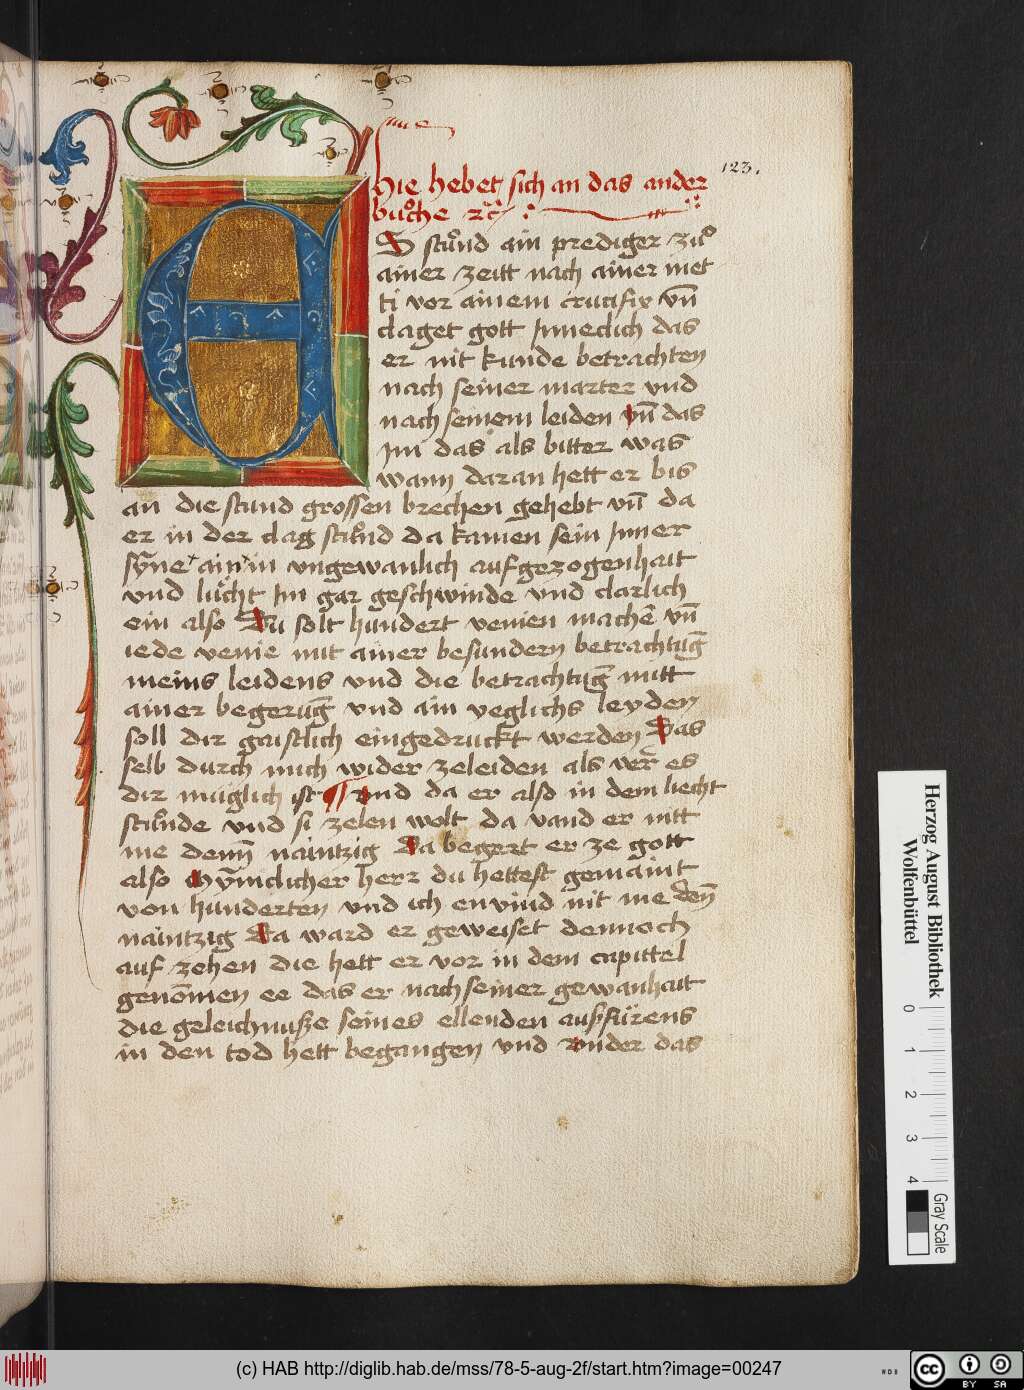 123.
hie hebet sich an das ander
buͦche ⁊c̃
S stuͦnd ain prediger zuͦ
ainer zeitt nach ainer met
ti vor ainem crucifix vn̄
claget gott Jnneclich das
er nit kunde betrachten
nach seiner marter vnd
nach seinem leiden vn̄ das
Jm das als bitter was
wann daran hett er bis
an die stund grossen brechen gehebt vn̄ da
er in der clag stuͦnd da kamen sein Jnner
syͤne ain in vngewanlich aufgezogenhait
vnd lüͤcht Jm gar geschwinde vnd clarlich
ein also Du solt hundert venien machē vn̄
iede venie mit ainer besundern betrachtūg
meins leidens vnd die betrachtūg mitt
ainer begerūg vnd ain yeglichs leyden
soll dir gaistlich eingedruckt werden Das
selb durch mich wider zeleiden als verr̃ es
dir müglich ist ¶ vnd da er also in dem liecht
stuͤnde vnd si zelen wolt da vand er nitt
me denn̄ naintzig Da begert er ze gott
also Mynnclicher herr du hettest gemaint
von hunderten vnd ich envind nit me den̄
naintzig Da ward er geweiset dennoch
auf zehen die hett er vor in dem capittel
genōmen ee das er nach seiner gewanhait
die geleichnuße seines ellenden außfürens
in den tod hett begangen vnd vnder das
Herzog August Bibliothek
Wolfenbüttel
0 1 2 3 4
Gray Scale
(c) HAB http://diglib.hab.de/mss/78-5-aug-2f/start.htm?image=00247
cc BY SA